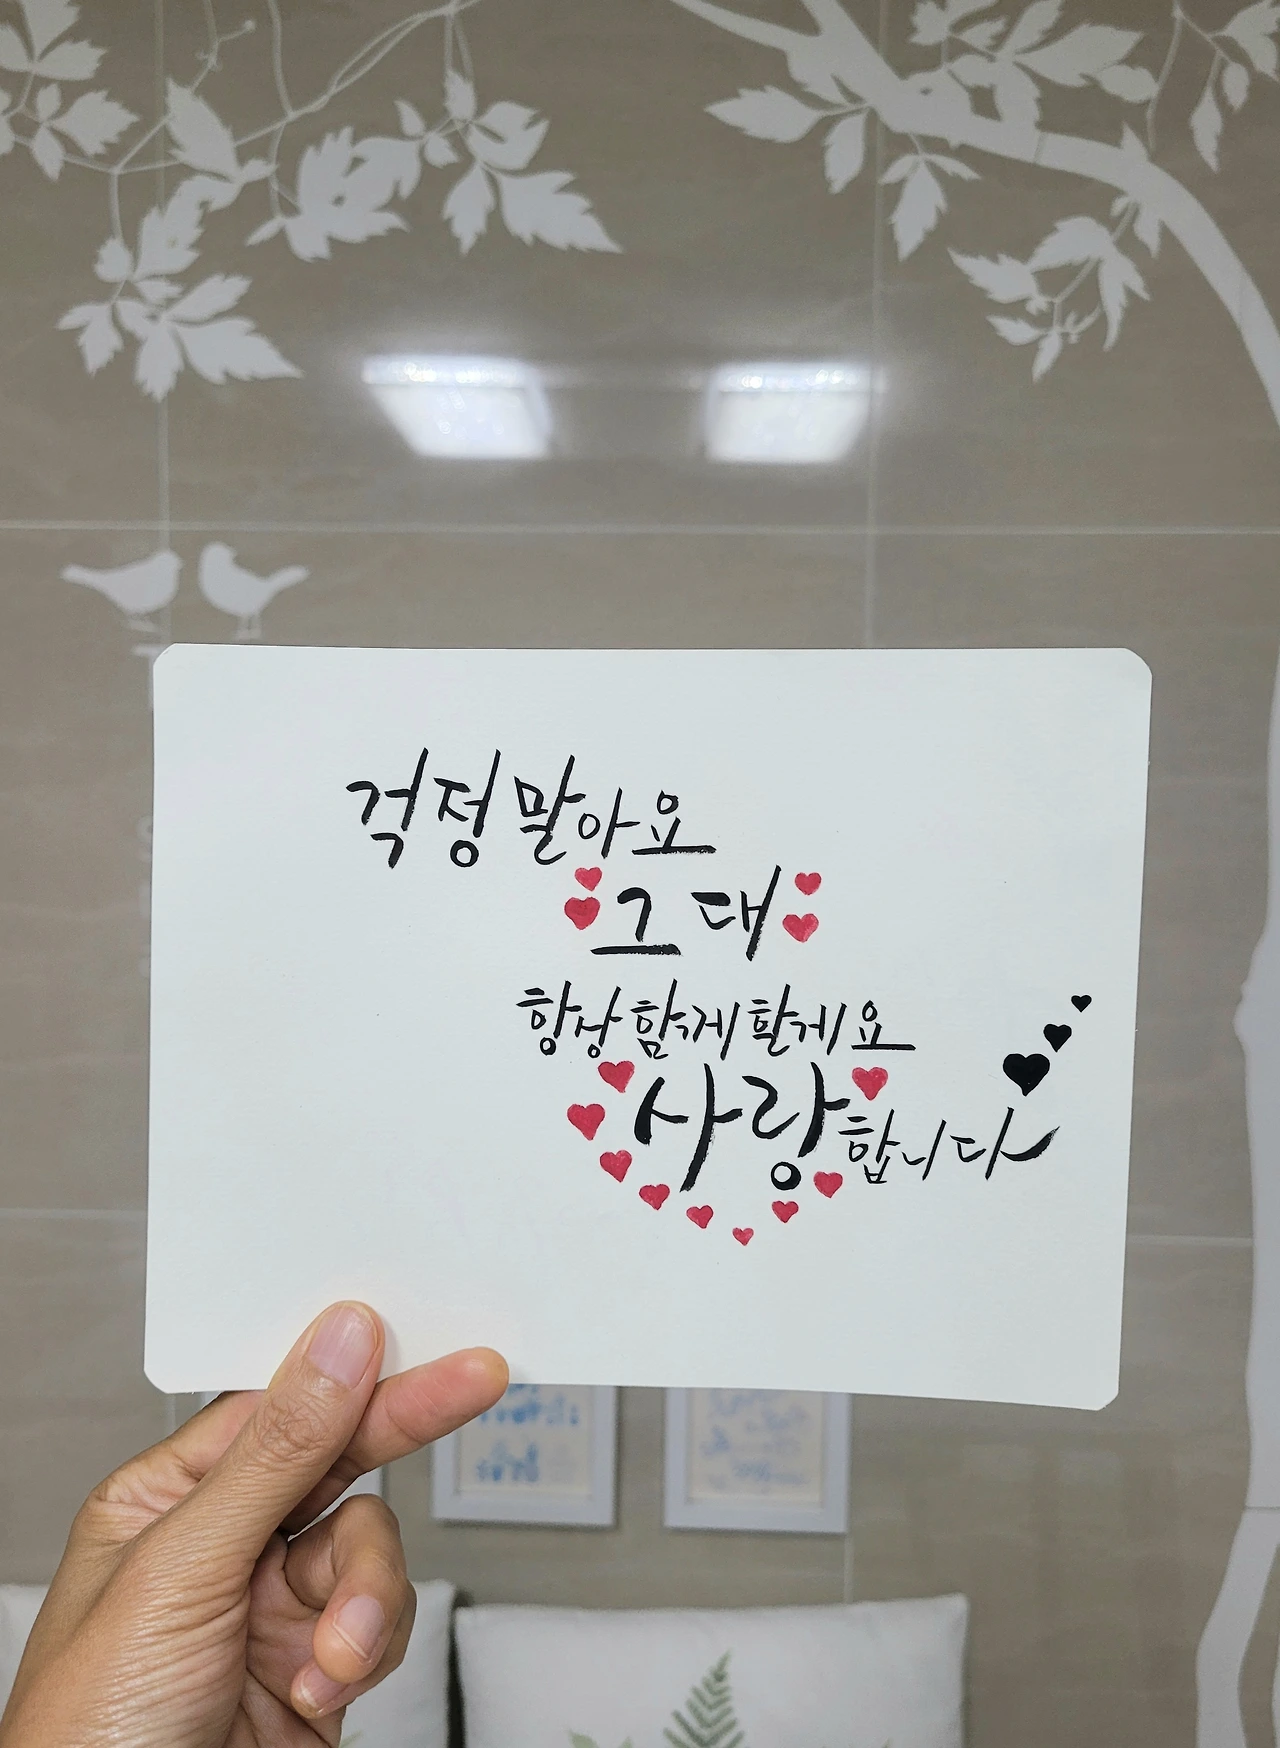 걱정말아요
그대
항상 함께 할게요
사랑합니다